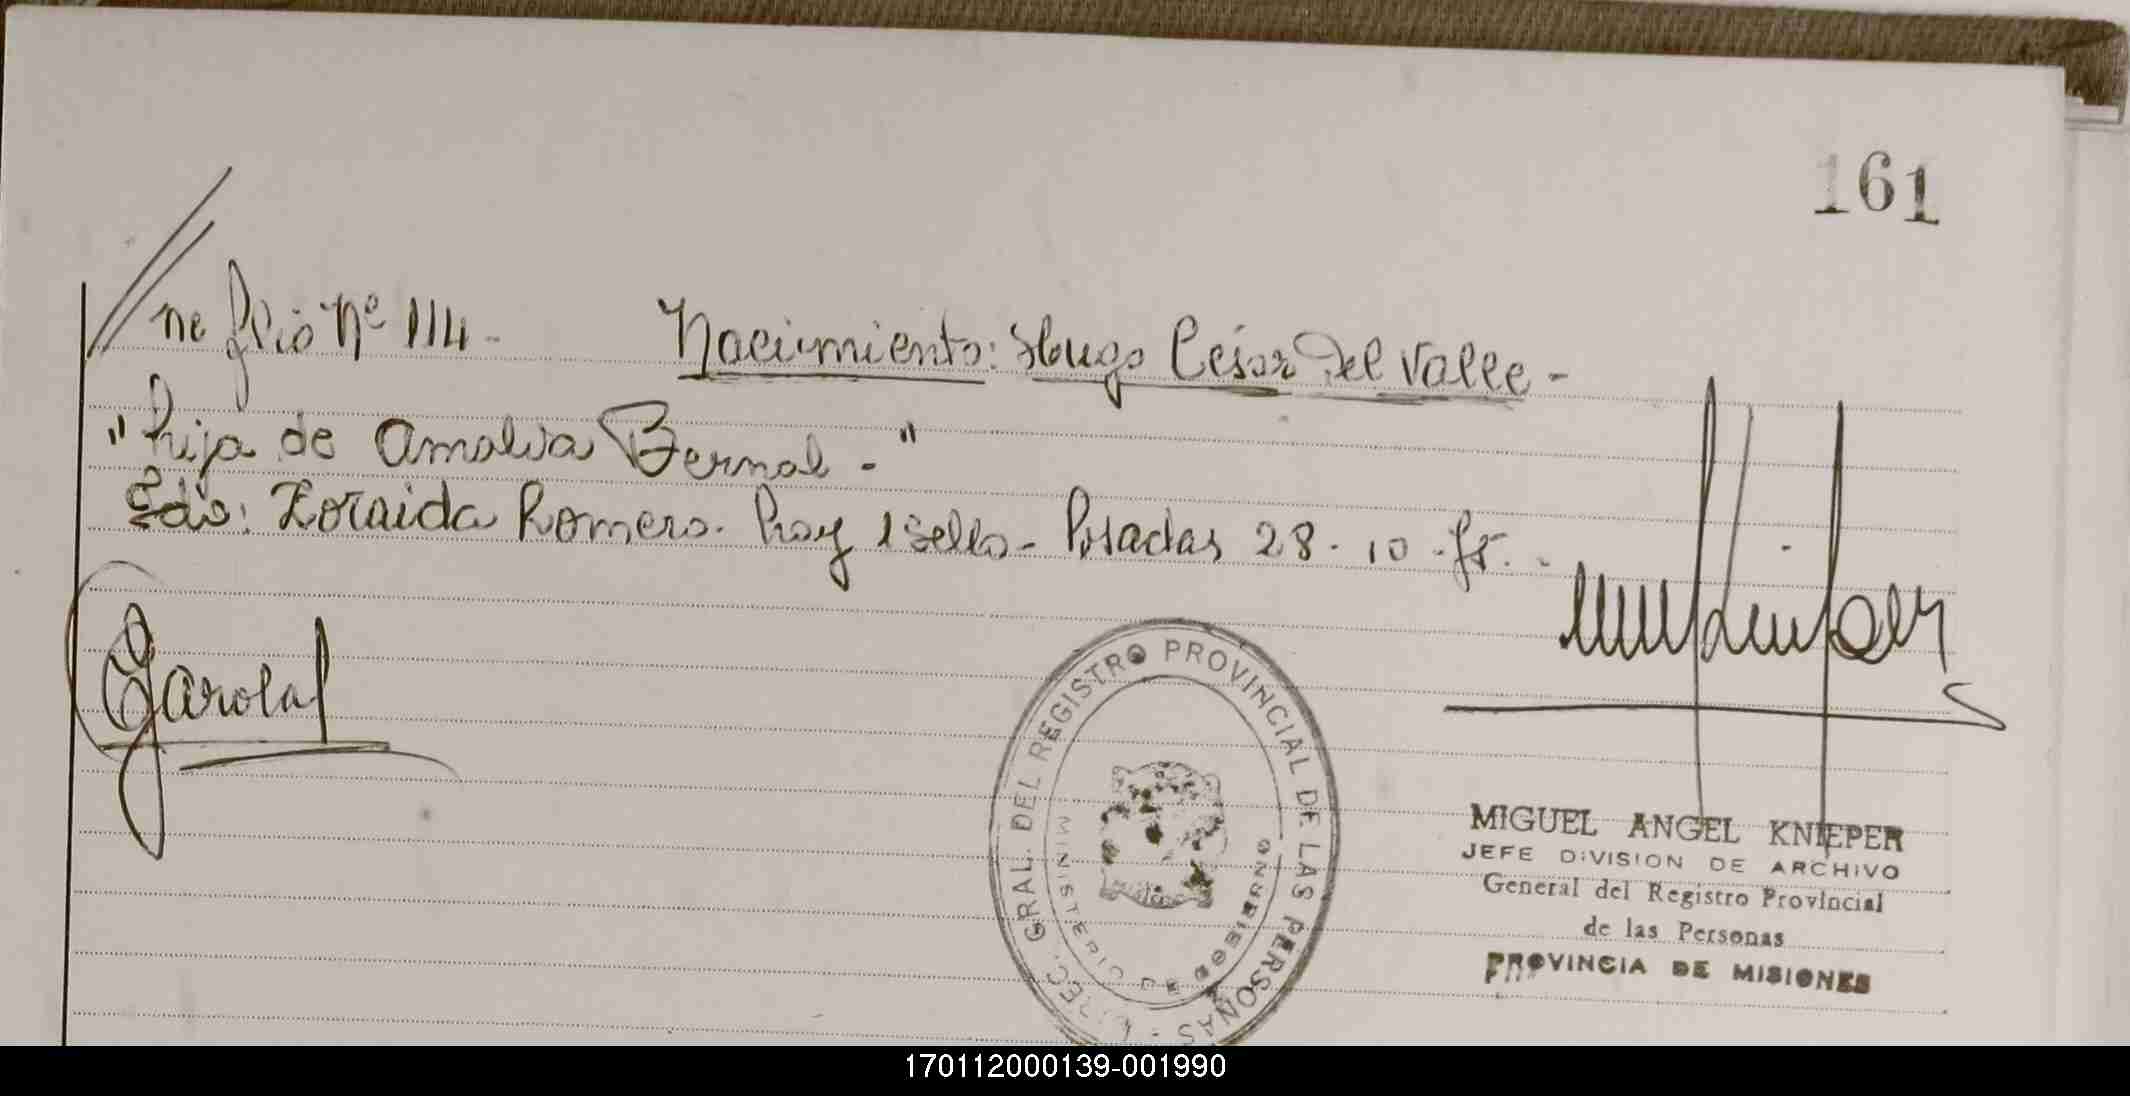 161
ne folio Nº 114 - Nacimiento: Hugo César Del Valle -
"hija de Amalia Bernal - "
Zoraida Romero. hay 1 sello - Posadas 28 - 10 -
DIREC. GRAL. DEL REGISTRO PROVINCIAL DE LAS PERSONAS -
MINISTERIO DE GOBIERNO
MIGUEL ANGEL KNIEPER
JEFE DIVISION DE ARCHIVO
General del Registro Provincial
de las Personas
PROVINCIA DE MISIONES
170112000139-001990